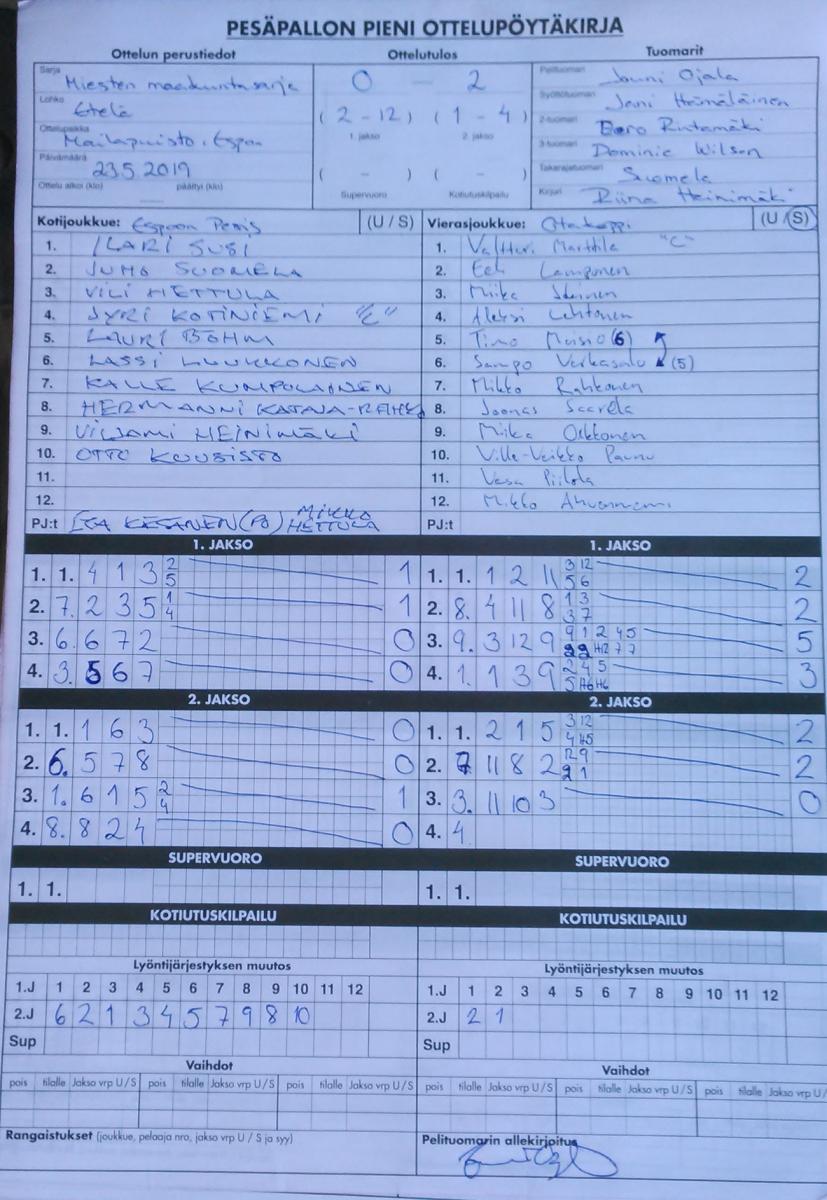 PESÄPALLON PIENI OTTELUPÖYTÄKIRJA
Ottelun perustiedot Ottelutulos Tuomarit
Sarja Miesten maakuntasarja
Lohko Etelä
Ottelupaikka Mailapuisto, Espoo
Päivämäärä 23.5.2019
Ottelu alkoi (klo) päättyi (klo)
0 — 2
(2 - 12) (1 - 4)
1. jakso 2. jakso
( - ) ( - )
Supervuoro Kotiutuskilpailu
Pelituomari Jouni Ojala
Syöttötuomari Jani Hämäläinen
2-tuomari Eero Rintamäki
3-tuomari Dominic Wilson
Takarajatuomari Suomela
Kirjuri Riina Heinimäki
Kotijoukkue: Espoon Pesis (U / S) Vierasjoukkue: (U / S)
1. ILARI SUSI 1. Valtteri Marttila "C"
2. JUHO SUOMELA 2. Eeli Lamponen
3. VILI HETTULA 3. Miika
4. JYRI KOTINIEMI "C" 4. Aleksi Lehtonen
5. LAURI BÖHM 5. Timo (6)
6. LASSI LUUKKONEN 6. Sampo Verkasalo (5)
7. KALLE KUMPULAINEN 7. Mikko Rahkonen
8. HERMANNI KATAJA- 8. Joonas Saarela
9. VILJAMI HEINIMÄKI 9. Miika Okkonen
10. OTTO KUUSISTO 10. Ville-Veikko Paunu
11. 11. Vesa Piilola
12. 12. Mikko Ahvenniemi
PJ:t ESA KESÄNEN (PJ) MIKKO HETTULA PJ:t
1. JAKSO 1. JAKSO
1. 1. 4 1 3 2 5 1 1. 1. 1 2 11 3 12 5 6 2
2. 7. 2 3 5 1 4 1 2. 8. 4 11 8 1 3 3 7 2
3. 6. 6 7 2 0 3. 9. 3 12 9 9 1 2 4 5 H12 7 7 5
4. 3. 5 6 7 0 4. 1. 1 3 9 2 4 5 5 H6 H6 3
2. JAKSO 2. JAKSO
1. 1. 1 6 3 0 1. 1. 2 1 5 3 12 4 45 2
2. 6. 5 7 8 0 2. 7 11 8 2 12 9 2 1 2
3. 1. 6 1 5 2 4 1 3. 3. 11 10 3 0
4. 8. 8 2 4 0 4. 4
SUPERVUORO SUPERVUORO
1. 1. 1. 1.
KOTIUTUSKILPAILU KOTIUTUSKILPAILU
Lyöntijärjestyksen muutos Lyöntijärjestyksen muutos
1.J 1 2 3 4 5 6 7 8 9 10 11 12 1.J 1 2 3 4 5 6 7 8 9 10 11 12
2.J 6 2 1 3 4 5 7 9 8 10 2.J 2 1
Sup Sup
Vaihdot Vaihdot
pois tilalle Jakso vrp U / S pois tilalle Jakso vrp U / S pois tilalle Jakso vrp U / S pois tilalle Jakso vrp U / S pois tilalle Jakso vrp U / S pois tilalle Jakso vrp U /
Rangaistukset (joukkue, pelaaja nro, jakso vrp U / S ja syy) Pelituomarin allekirjoitus